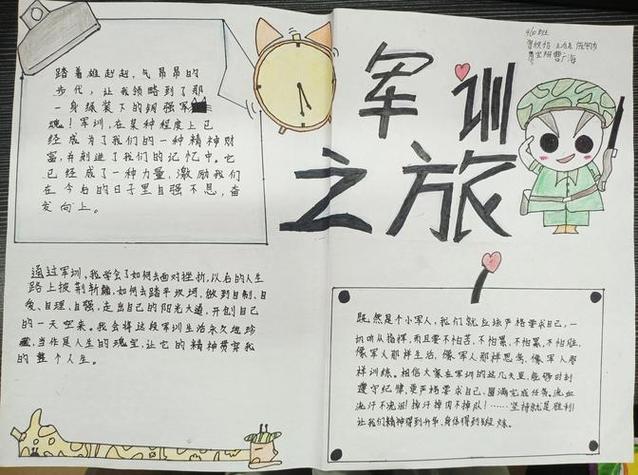 军训
之旅
踏着雄赳赳,气昂昂的
步代,让我领略到了那
一身绿装下的钢强军
魂!军训,在某种程度上已
经成为了我们的一种精神财
富,并刻进了我们的记忆中。它
已经成了一种力量,激励我们
在今后的日子里自强不息,奋
发向上。
通过军训,我学会了如何去面对挫折,以后的人生
路上披荆斩棘,如何去踏平坎坷。做到自制、自
爱、自理、自强,走出自己的阳光大道,开创自己
的一天空来。我会将这段军训生活永久地珍
藏,当作是人生的瑰宝,让它的精神贯穿我
的整个人生。
既然是个小军人,我们就应该严格要求自己,一
切听从指挥,而且要不怕苦,不怕累,不怕黑,不怕难,
像军人那样生活,像军人那样思考,像军人那
样训练。相信大家在军训的这几天里,能够时刻
遵守纪律,更严格要求自己,圆满完成任务。流血
流汗不流泪!掉汗掉肉不掉队!……坚持就是胜利!
让我们精神得到升华,身体得到锻炼。